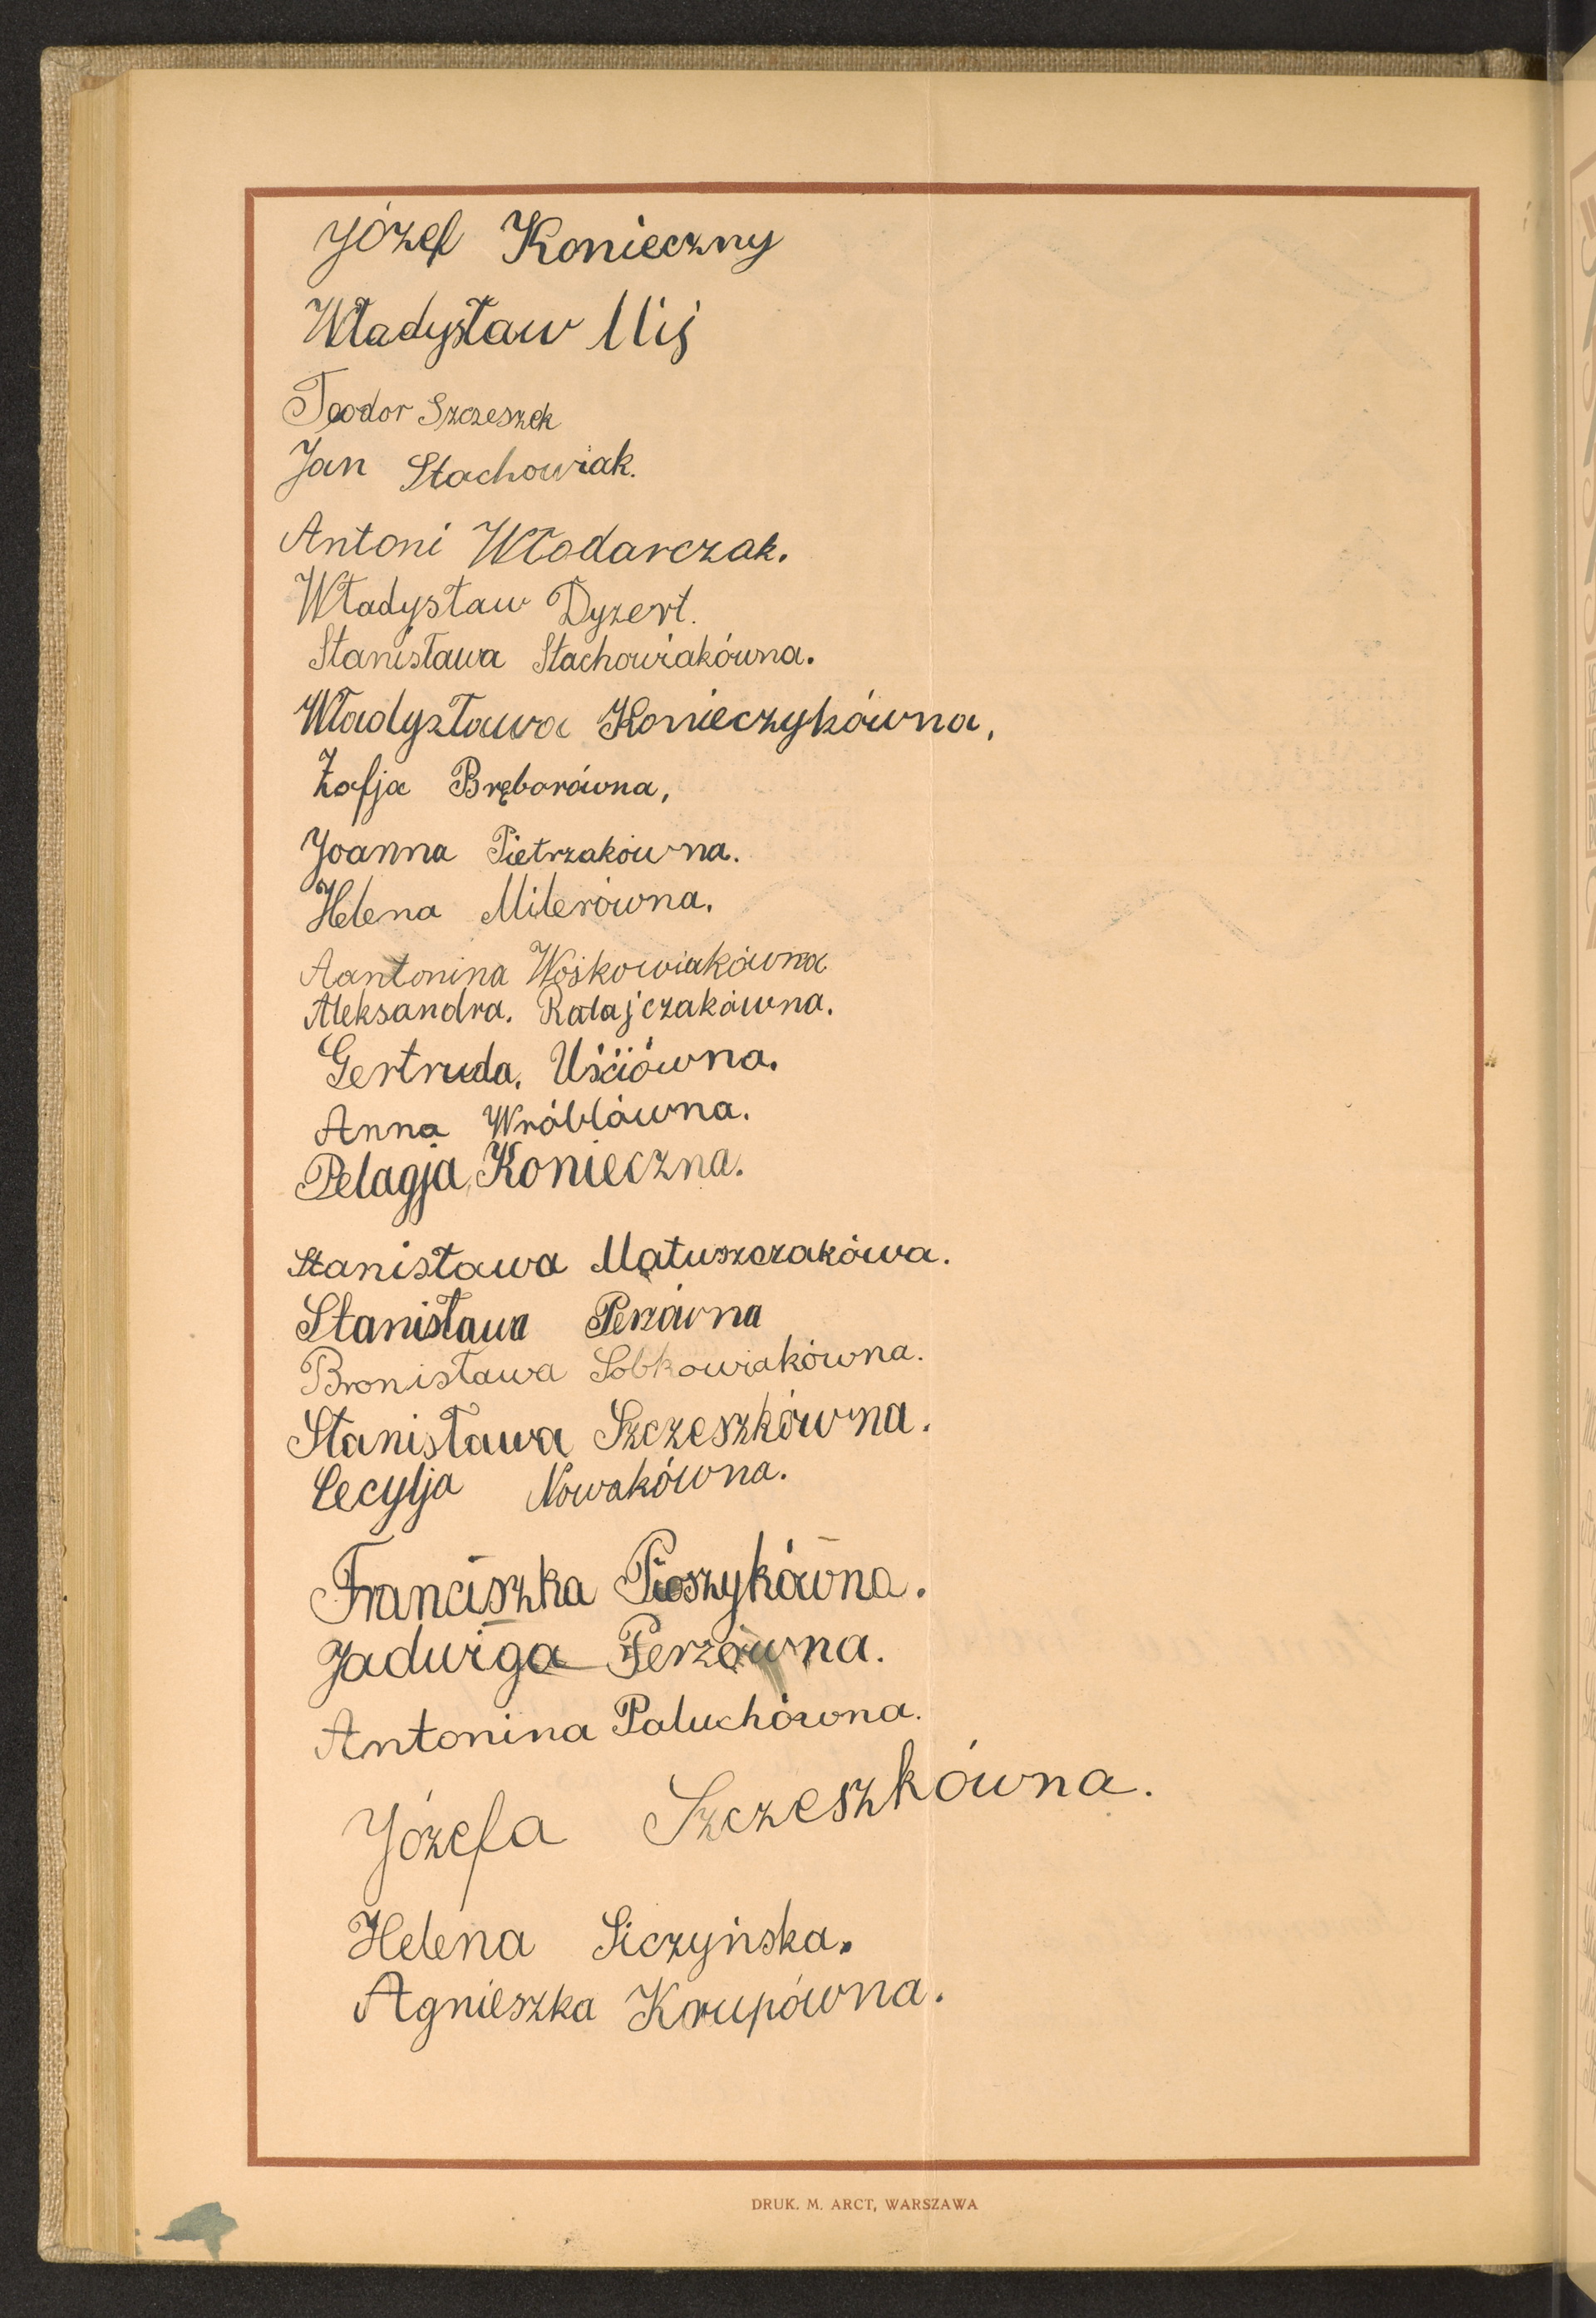 Józef Konieczny
Władysław Miś
Teodor Szczeszek
Jan Stachowiak.
Antoni Włodarczak.
Władysław Dyzert.
Stanisława Stachowiakówna.
Władyzława Konieczykówna,
Zofja Bręborówna,
Joanna Pietrzakówna.
Helena Milerówna.
Aantonina Wośkowiakówna
Aleksandra. Ratajczakówna.
Gertruda. Uściówna.
Anna Wróblówna.
Pelagja Konieczna.
Stanisława Matuszczakówa.
Stanisława Perzówna
Bronisława Sobkowiakówna.
Stanisława Szczeszkówna.
Cecylja Nowakówna.
Franciszka Pioszykówna.
Jadwiga Perzówna.
Antonina Paluchówna.
Józefa Szczeszkówna.
Helena Siczyńska.
Agnieszka Krupówna.
DRUK. M. ARCT, WARSZAWA